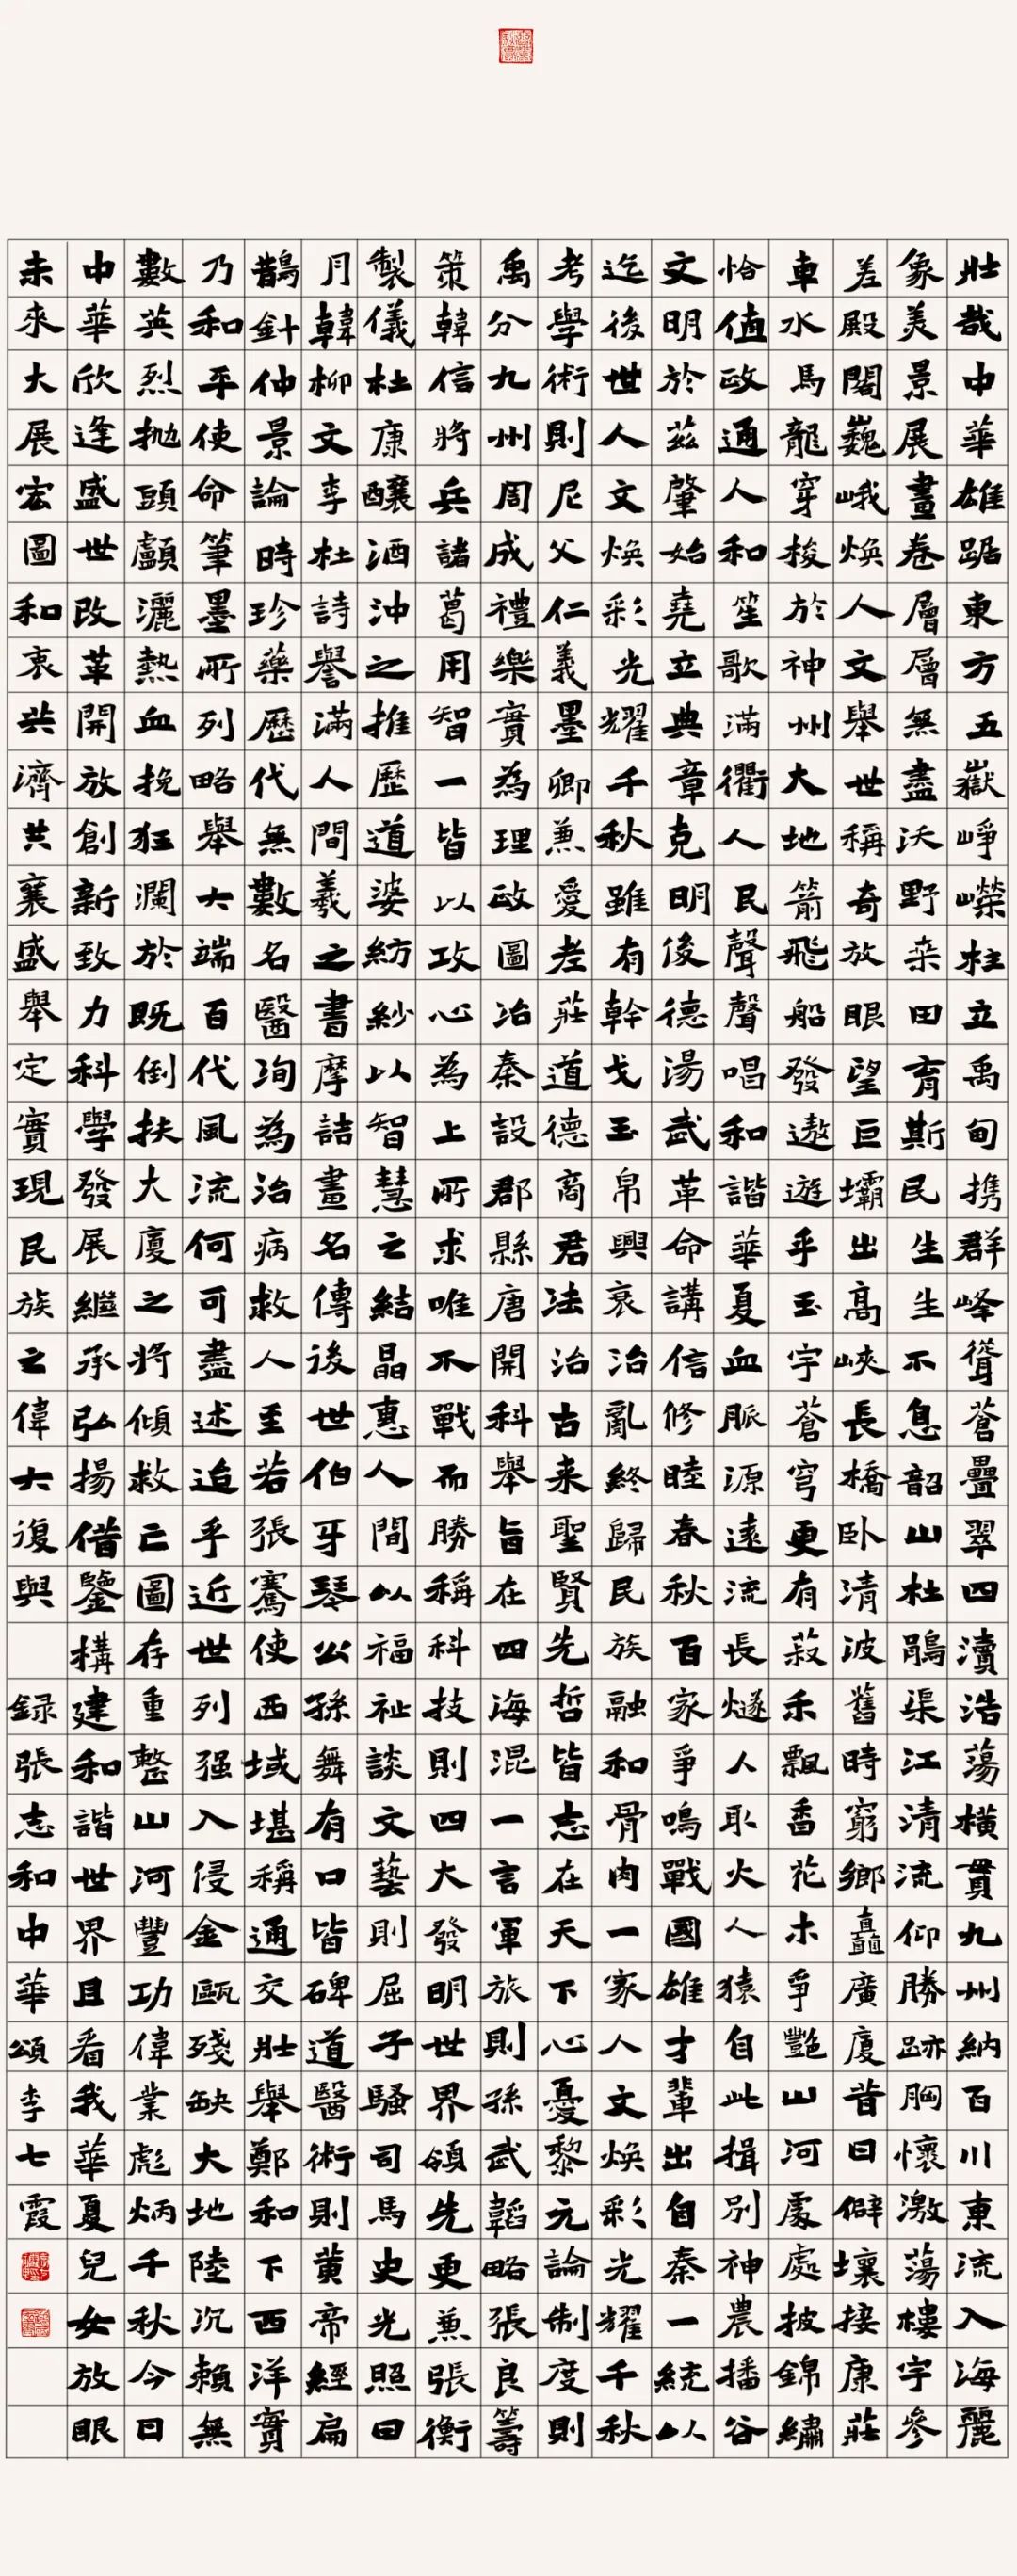 壯哉中華雄踞東方五嶽崢嶸柱立禹甸携群峰聳蒼疊翠四瀆浩蕩橫貫九州納百川東流入海麗
象美景展畫卷層層無盡沃野桑田育斯民生生不息韶山杜鵑渠江清流仰勝跡胸懷激蕩樓宇參
差殿閣巍峨煥人文舉世稱奇放眼望巨壩出高峽長橋卧清波舊時窮鄉矗廣廈昔日僻壤接康莊
車水馬龍穿梭於神州大地箭飛船發遨遊乎玉宇蒼穹更有菽禾飄香花木爭艷山河處處披錦繡
恰值政通人和笙歌滿衢人民聲聲唱和諧華夏血脈源遠流長燧人取火人猿自此揖別神農播谷
文明於茲肇始堯立典章克明後德湯武革命講信修睦春秋百家爭鳴戰國雄才輩出自秦一統以
迄後世人文煥彩光耀千秋雖有幹戈玉帛興衰治亂終歸民族融和骨肉一家人文煥彩光耀千秋
考學術則尼父仁義墨卿兼愛老莊道德商君法治古来聖賢先哲皆志在天下心憂黎元論制度則
禹分九州周成禮樂實為理政圖冶秦設郡縣唐開科舉旨在四海混一言軍旅則孫武韜略張良籌
策韓信將兵諸葛用智一皆以攻心為上所求唯不戰而勝稱科技則四大發明世界領先更兼張衡
製儀杜康釀酒沖之推歷道婆紡紗以智慧之結晶惠人間以福祉談文藝則屈子騷司馬史光照日
月韓柳文李杜詩譽滿人間羲之書摩詰畫名傳後世伯牙琴公孫舞有口皆碑道醫術則黃帝經扁
鵲針仲景論時珍藥歷代無數名醫洵為治病救人至若張騫使西域堪稱通交壯舉鄭和下西洋實
乃和平使命筆墨所列略舉大端百代風流何可盡述迨乎近世列强入侵金甌殘缺大地陸沉賴無
數英烈拋頭顱灑熱血挽狂瀾於既倒扶大廈之將傾救亡圖存重整山河豐功偉業彪炳千秋今日
中華欣逢盛世改革開放創新致力科學發展繼承弘揚借鑒構建和諧世界且看我華夏兒女放眼
未來大展宏圖和衷共濟共襄盛舉定實現民族之偉大復興 録張志和中華頌李七霞